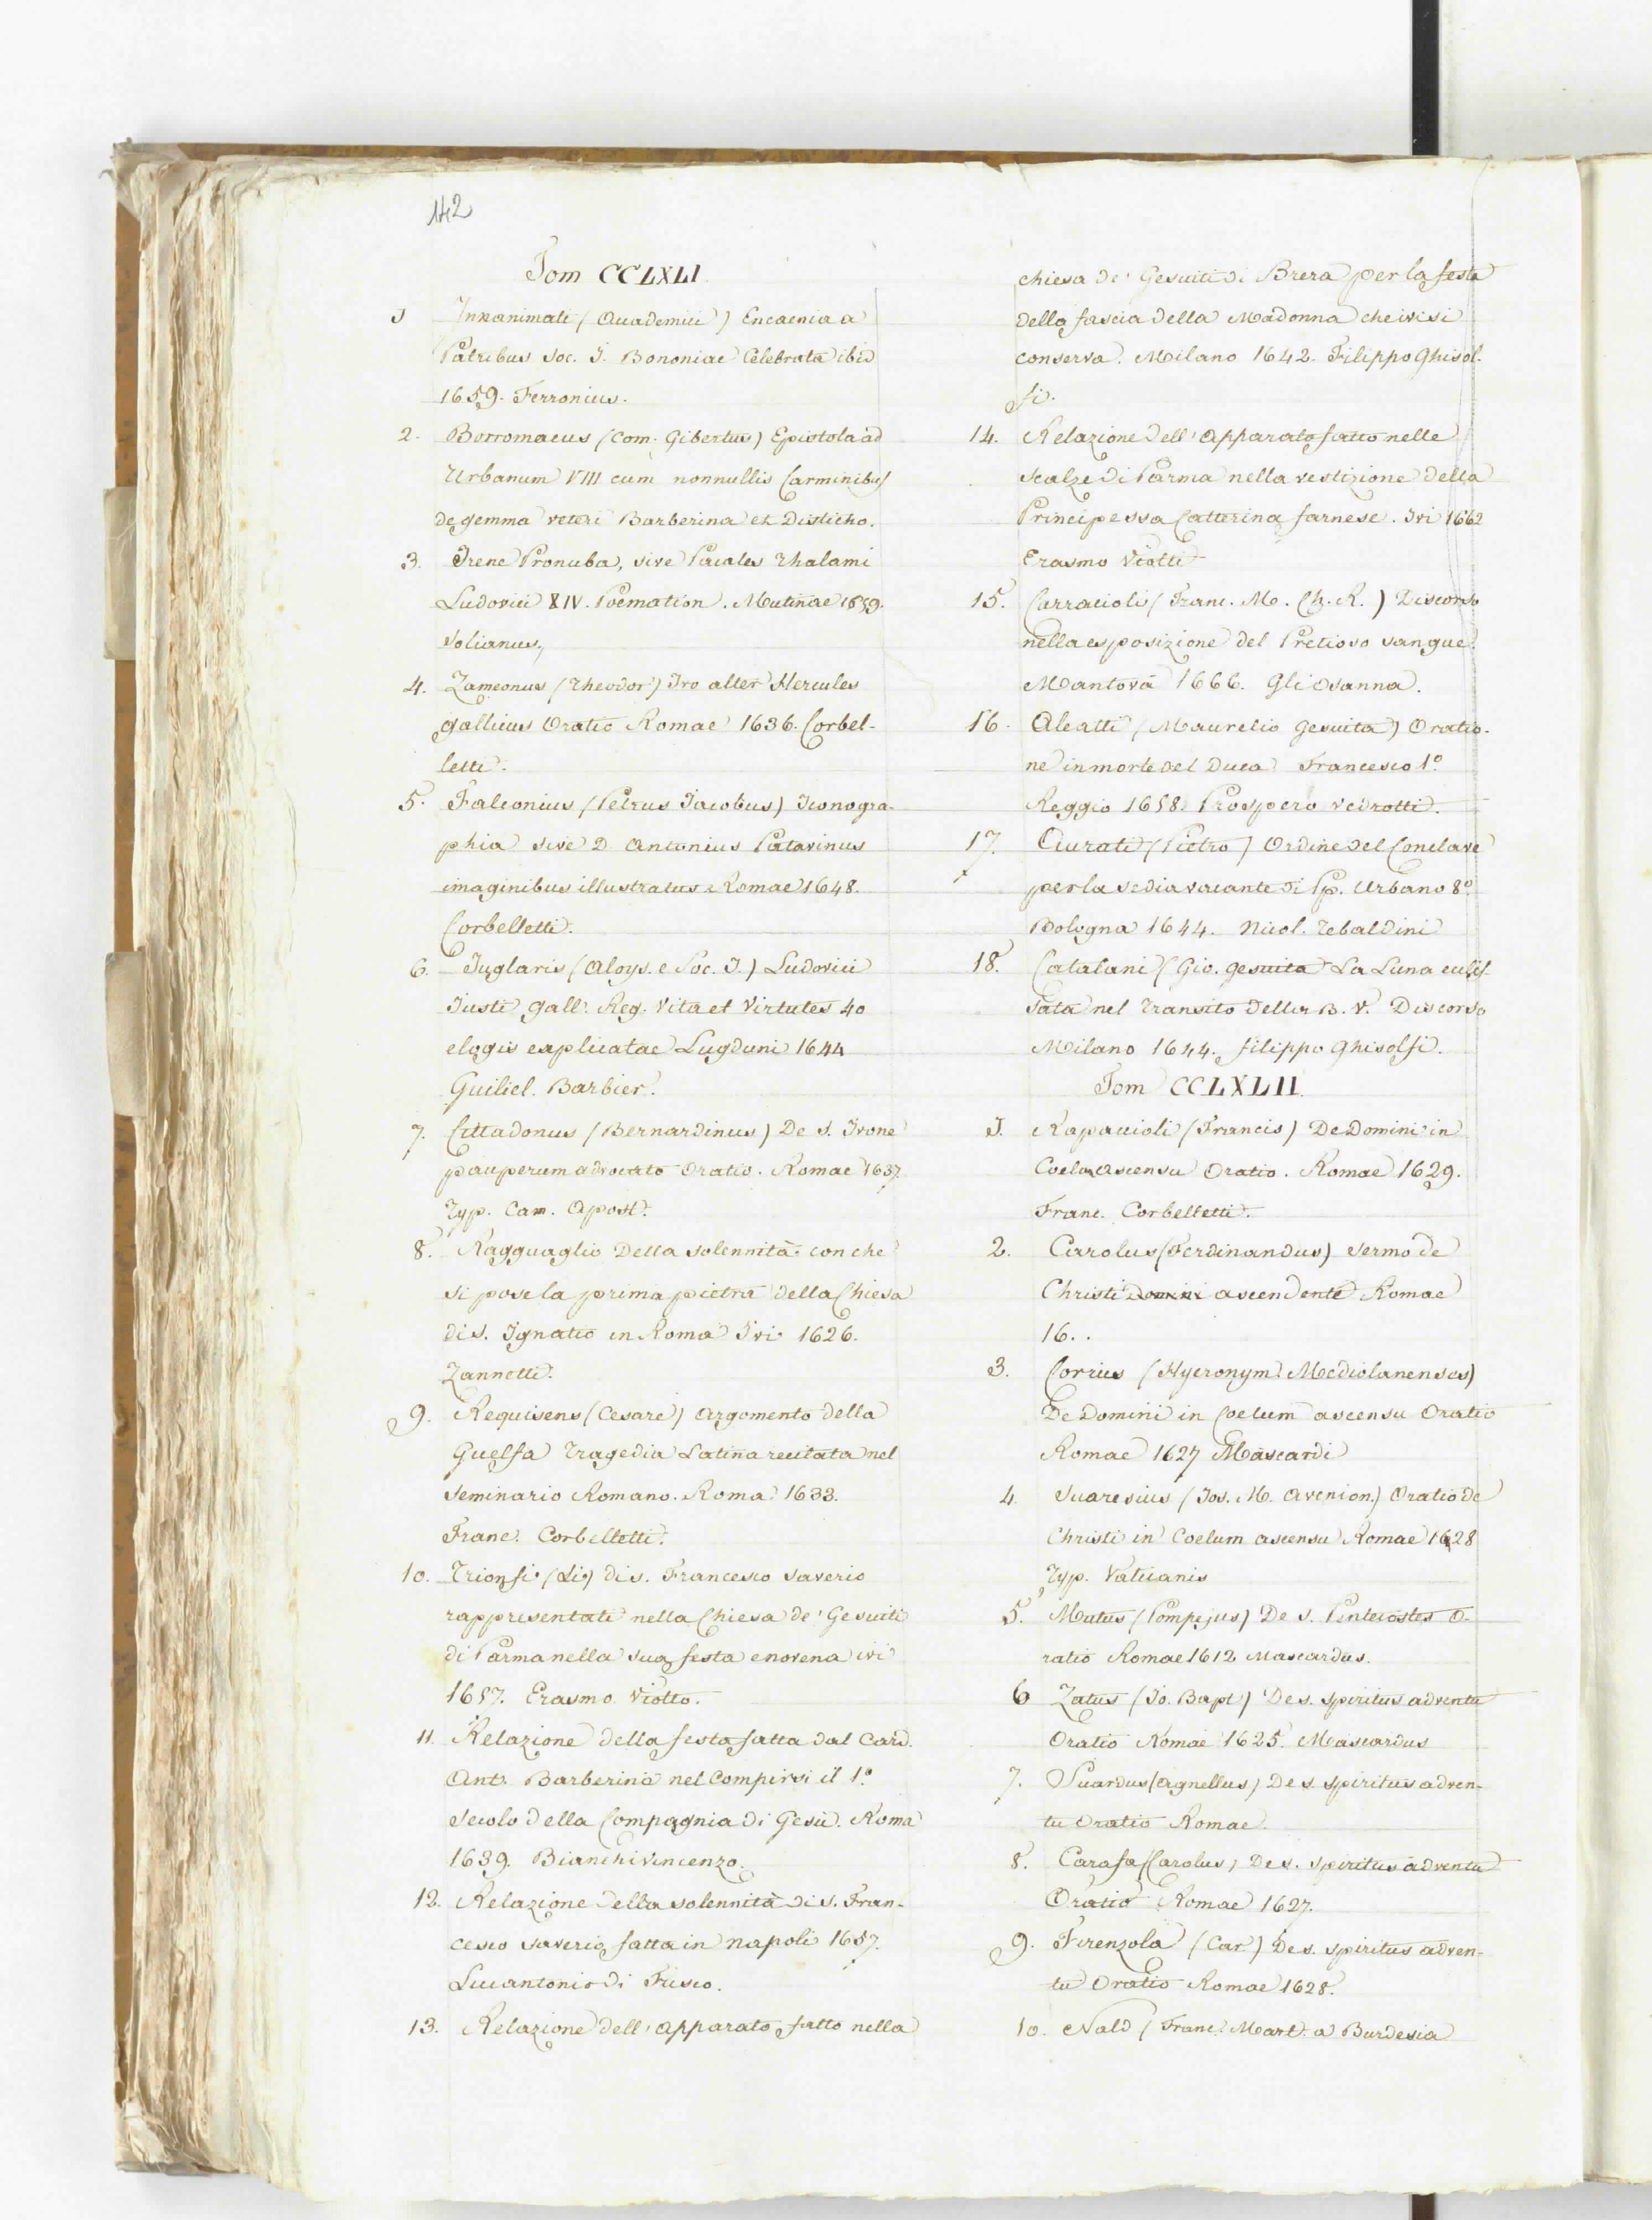 142
Tom CCLXLI
1 Innanimati (Academici) Encaenia a
Patribus Soc. J. Bononiae Celebrata ibid
1659. Ferronius.
2. Borromaeus (Com. Gibertus) Epistola ad
Urbanum VIII cum nonnullis Carminibus
de gemma veteri Barberina et Disticho.
3. Irene Pronuba, sive Paciales Thalami
Ludovici XIV. Poemation. Mutinae 1659.
Solianus,
4. Zameonus (Theodor) Ivo alter Hercules
gallicus Oratio Romae 1636. Corbel-
letti.
5. Falconius (Petrus Jacobus) Iconogra-
phia sive D Antonius Patavinus
imaginibus illustratus. Romae 1648.
Corbelletti.
6. Juglaris (Aloys. e Soc. J.) Ludovici
Justi Gall. Reg. Vita et Virtutes 40
elogis explicatae Lugduni 1644
Guiliel. Barbier.
7. Cittadonus (Bernardinus) De S. Ivone
pauperum advocato Oratio. Romae 1637.
Typ. Cam. Apost.
8. Ragguaglio Della solennità con che
si pose la prima pietra della Chiesa
di S. Ignatio in Roma Ivi 1626.
Zannetti.
9. Requisens (Cesare) Argomento della
Guelfa Tragedia Latina recitata nel
Seminario Romano. Roma 1633.
Franc. Corbelletti.
10. Trionfi (Li) di s. Francesco Saverio
rappresentati nella Chiesa de' Gesuiti
di Parma nella sua festa e novena ivi
1657. Erasmo Viotto.
11. Relazione della festa fatta dal Card.
Ant. Barberino nel Compirsi il 1.º
secolo della Compagnia di Gesù. Roma
1639. Bianchi Vincenzo.
12. Relazione della solennità di S. Fran-
cesco Saverio fatta in Napoli 1657.
Lucantonio di Fusco.
13. Relazione dell' apparato fatto nella
chiesa de' Gesuiti di Brera per la festa
della fascia della Madonna che ivi si
conserva. Milano 1642. Filippo Ghisol-
fi.
14. Relazione dell' Apparato fatto nelle
scalze di Parma nella vestizione della
Principessa Catterina farnese. Ivi 1662
Erasmo Viotti
15. Carracioli (Franc. M. Ch. R.) Discorso
nella esposizione del Pretioso sangue.
Mantova 1666. Gli Osanna.
16. Aleatti (Maurelio Gesuita) Oratio-
ne in morte del Duca Francesco 1.º
Reggio 1658. Prospero Vedrotti.
17. Ciurati (Pietro) Ordine del Conclave
per la sedia vacante di Pp. Urbano 8.º
Bologna 1644. Nicol. Tebaldini
18. Catalani (Gio. gesuita La Luna eclis-
sata nel Transito Della B. V. Discorso
Milano 1644. filippo Ghisolfi.
Tom CCLXLII
1. Rapaccioli (Francis) De Domini in
Coelum ascensu Oratio. Romae 1629.
Franc. Corbelletti.
2. Carolus (Ferdinandus) Sermo de
Christi Domini ascendente Romae
16..
3. Corrius (Hyeronym. Mediolanenses)
De Domini in Coelum ascensu Oratio
Romae 1627 Mascardi
4. Suaresius (Jos. M. Avenion.) Oratio de
Christi in Coelum ascensu Romae 1628
Typ. Vaticanis
5. Mutus (Pompejus) De S. Pentecostes O-
ratio Romae 1612 Mascardus.
6 Zatus (Jo. Bapt.) De s. spiritus adventu
Oratio Romae 1625. Mascardus
7. Suardus (Agnellus) De s. spiritus adven-
tu Oratio Romae.
8. Carafa (Carolus) De s. spiritus adventu
Oratio Romae 1627.
9. Firenzola (Car.) De s. spiritus adven-
tu Oratio Romae 1628.
10. Nald (Franc. Mart. a Burdesia